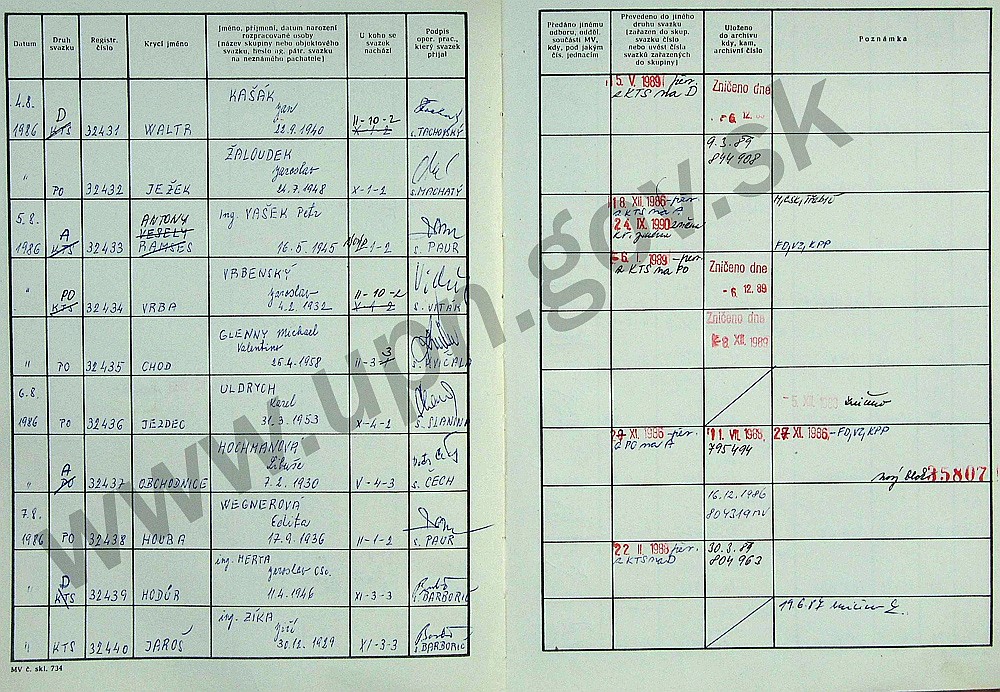 Datum
Druh svazku
Registr. číslo
Krycí jméno
Jméno, příjmení, datum narození
rozpracované osoby
(název skupiny nebo objektového
svazku, heslo ag. pátr. svazku
na neznámého pachatele)
U koho se
svazek
nachází
Podpis
oper. prac.,
který svazek
přijal
Předáno jinému
odboru, odděl.
součásti MV,
kdy, pod jakým
čís. jednacím
Převedeno do jiného
druhu svazku
(zařazen do skup.
svazku číslo
nebo uvést čísla
svazků zařazených
do skupiny)
Uloženo
do archivu
kdy, kam,
archivní číslo
Poznámka
4.8.
1986 D KTS 32431 WALTR
KAŠÁK
Jan
22.9.1940
II-10-2
X-1-2
s. TACHOVSKÝ
5. V. 1989 per.
z KTS na D
Zničeno dne
-6. 12. 89
" PO 32432 JEŽEK
ŽALOUDEK
Jaroslav
24.7.1948
X-1-2
s. MACHATÝ
9.3.89
844908
5.8.
1986 A KTS 32433
ANTONY
VESELÝ
RAMSES
Ing. VAŠEK Petr
16.5.1945
-1-2
s. PAUR
18. XII. 1986 - per.
z KTS na A
24. IX. 1990
FO, VZ, KPP
" PO KTS 32434 VRBA
VRBENSKÝ
Jaroslav
4.2.1932
II-10-2
X-1-2
s. VITÁK
-6. I. 1989 - per.
z KTS na PO
Zničeno dne
-6. 12. 89
" PO 32435 CHOD
GLENNY Michael
Valentino
26.4.1958
II-3-3
s. HVIČALA
Zničeno dne
-8. XII. 1989
6.8.
1986 PO 32436 JEZDEC
ULDRYCH
Karel
31.3.1953
X-4-2
s. SLANINA
-5. XII. 1989 zničeno
" A PO 32437 OBCHODNICE
HOCHMANOVÁ
Libuše
7.2.1930
V-4-3
s. ČECH
XI. 1986 - per.
z PO na A
11. VII. 1988,
795494
27 XI. 1986, - FO, VZ, KPP
nový blok 35807
7.8.
1986 PO 32438 HOUBA
WEGNEROVÁ
Edita
17.9.1936
II-1-2
s. PAUR
16.12.1986
804319 MV
" D KTS 32439 HODŮR
ing. HERTA
Jaroslav CSc.
11.4.1946
XI-3-3
s. BARBORIČ
22 II. 1988 per.
z KTS na D
30.3.89
804963
" KTS 32440 JAROŠ
ing. ZÍKA
Jiří
30.12.1929
XI-3-3
s. BARBORIČ
19.6.87 zničen
MV č. skl. 734
www.upn.gov.sk